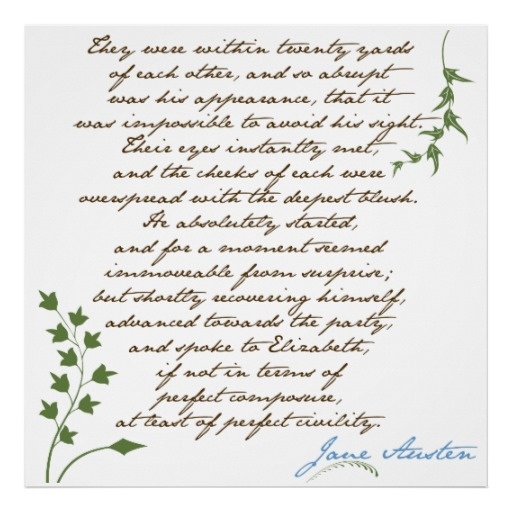 They were within twenty yards
of each other, and so abrupt
was his appearance, that it
was impossible to avoid his sight.
Their eyes instantly met,
and the cheeks of each were
overspread with the deepest blush.
He absolutely started,
and for a moment seemed
immoveable from surprise;
but shortly recovering himself,
advanced towards the party,
and spoke to Elizabeth,
if not in terms of
perfect composure,
at least of perfect civility.
Jane Austen